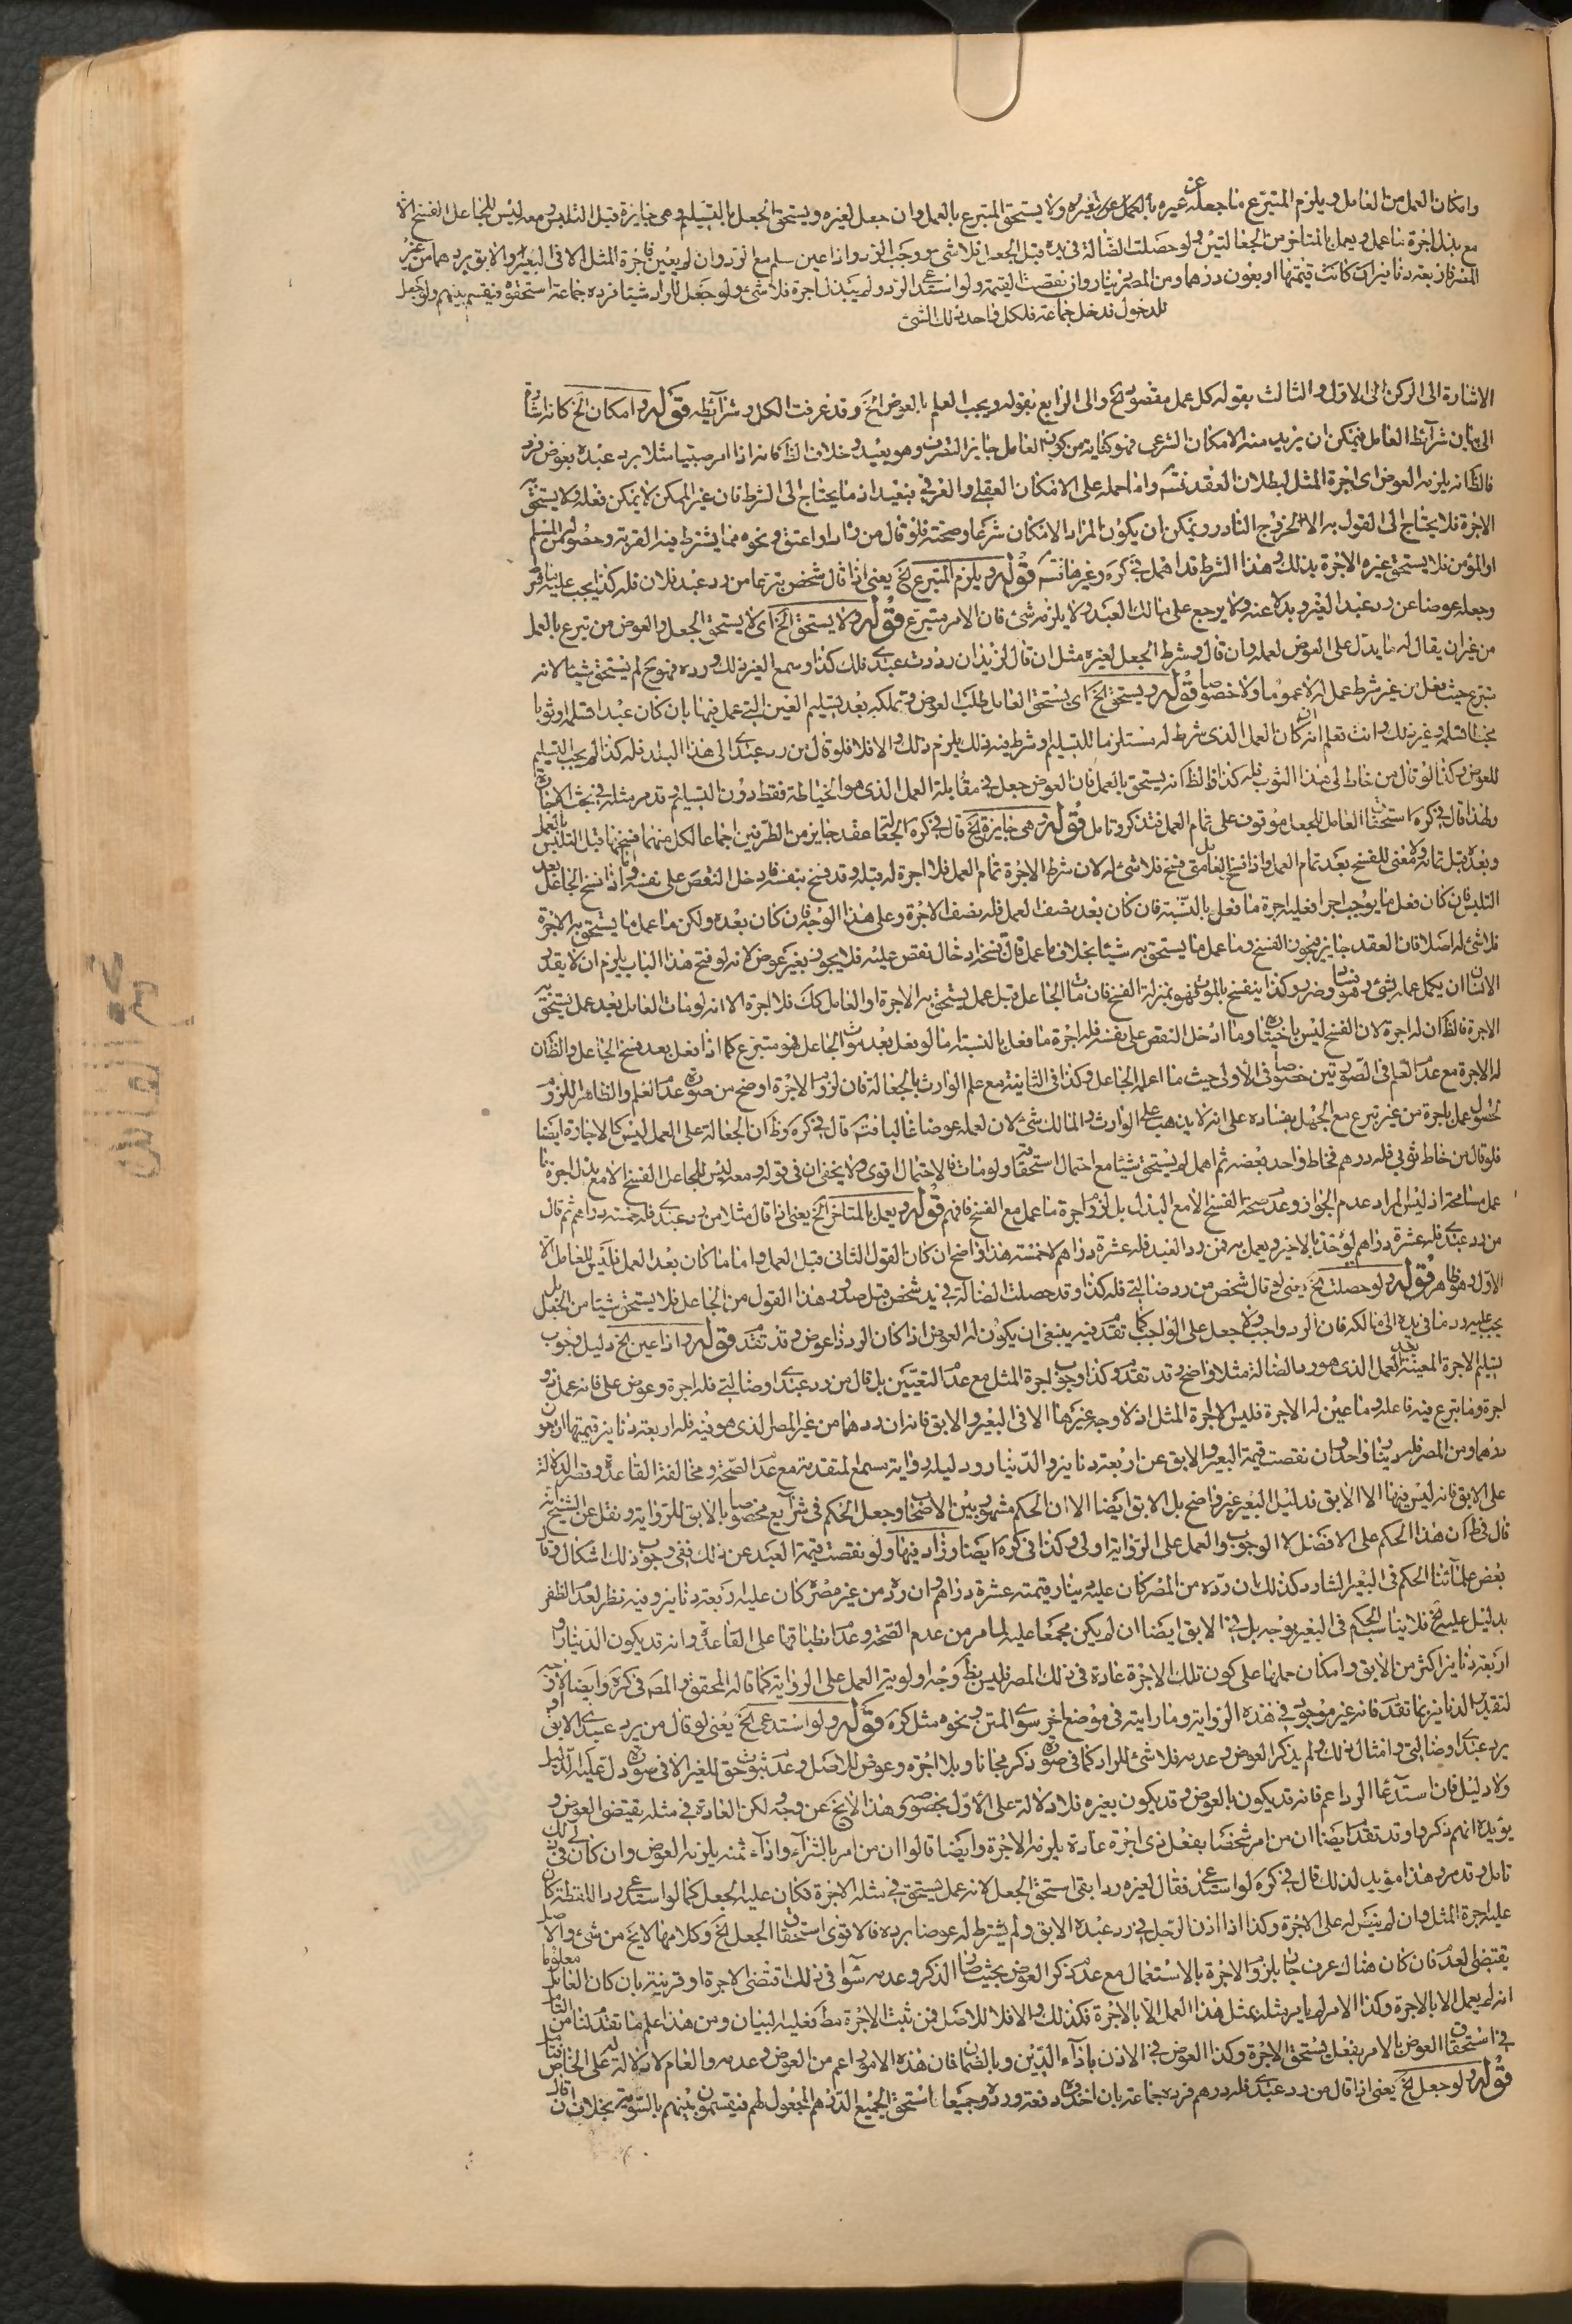 وامكان العمل من العامل ويلزم المتبرع ما جعله عن غيره بالعمل عن غيره ولا يستحق المتبرع بالعمل وان جعل لغيره ويستحق الجعل بالتسليم وهي جايزة قبل التلبس ومعه ليس للجاعل الفسخ الا
مع بذل اجرة ما عمل ويعمل بالمتاخر من الجعالتين ولو حصلت الضالة في يده قبل الجعل فلا شيء ووجب الرد واذا عين سلم مع الرد وان لم يعين فاجرة المثل الا في البعير والابق يردهما من غير
المصر فاربعة دنانير ان كانت قيمتها اربعون درهما ومن المصر دينار وان نقصت القيمة ولو استدعى الرد ولم يبذل اجرة فلا شيء ولو جعل للراد شيئا فرده جماعة استحقوه ويقسم بينهم ولو جعل
للدخول فدخل جماعة فلكل واحد ذلك الشئ
الاشارة الى الركن الى الاول والثالث بقوله كل عمل مقصود الخ والى الرابع بقوله ويجب العلم بالعوض الخ وقد عرفت الكل وشرائطه قوله وامكان الخ كانه اشارة
الى بيان شرائط العامل فيمكن ان يريد منه الامكان الشرعي فهو كناية من كون العامل جايز التصرف وهو بعيد وخلاف الظ كانه اذا امر صبيا مثلا برد عبده بعوض فرد
فالظ انه يلزمه العوض اى اجرة المثل لبطلان العقد فتم واما حمله على الامكان العقلي والعرفي فبعيد اذ ما يحتاج الى الشرط فان غير الممكن لا يمكن فعله ولا يستحق به
الاجرة فلا يحتاج الى القول به الا لخروج النادر ويمكن ان يكون المراد الامكان شرعا وصحته فلو قال من زار او اعتق ونحوه مما يشترط فيه القربة وحصوله من المسلم
او المؤمن فلا يستحق غيره الاجرة بذلك وهذا الشرط قد اهمل في كره وغيرها فتم قوله ويلزم المتبرع الخ يعنى اذا قال شخص تبرعا من رد عبد فلان فله كذا يجب عليه ما قرر
وجعله عوضا عن رد عبد الغير وبدلا عنه ولا يرجع على مالك العبد ولا يلزمه شئ فان الامر متبرع قوله ولا يستحق الخ اى لا يستحق الجعل والعوض من تبرع بالعمل
من غير ان يقال له ما يدل على العوض لعمله وان قال وشرط الجعل لغيره مثل ان قال لزيد ان رددت عبدى فلك كذا وسمع الغير ذلك ورده فهو ح لم يستحق شيئا لانه
تبرع حيث فعل من غير شرط عمل له لا عموما ولا خصوصا قوله ويستحق الخ اى يستحق العامل طلب العوض وتملكه بعد تسليم العين التي عمل فيها بان كان عبدا فسلمه او ثوبا
مخيطا فسلمه وغير ذلك وانت تعلم ان كان العمل الذى شرط له مستلزما للتسليم او شرط فيه ذلك يلزم ذلك والا فلا فلو قال من رد عبدى الى هذا البلد فله كذا لم يجب التسليم
للعوض وكذا لو قال من خاط لى هذا الثوب فله كذا فالظ انه يستحق بالعمل فان العوض جعل في مقابلة العمل الذى هو الخياطة فقط دون التسليم وقد مر مثله في بحث الاجارة
ولهذا قال في كره استحقاق العامل للجعل موقوف على تمام العمل فتذكر وتامل قوله وهي جايزة الخ قال في كره الجعالة عقد جايز من الطرفين اجماعا لكل منهما فسخها قبل التلبس بالعمل
وبعده قبل تمامه ولا معنى للفسخ بعد تمام العمل واذا فسخ العامل في فسخ فلا شئ له لان شرط الاجرة تمام العمل فلا اجرة له قبله وقد فسخ بنفسه فادخل النقص على نفسه واذا فسخ الجاعل بعد
التلبس فان كان فعل ما يوجب اجرا فعليه اجرة ما فعل بالنسبة فان كان بعد نصف العمل فله نصف الاجرة وعلى هذا الوجه فان كان بعده ولكن ما عمل ما يستحق به الاجرة
فلا شئ له اصلا فان العقد جايز فيجوز الفسخ وما عمل ما يستحق به شيئا بخلاف ما عمل فان فسخه ادخال نقص عليه فلا يجوز بغير عوض لانه لو فتح هذا الباب يلزم ان لا يقدر
الانسان ان يكمل عمله بشئ وهو فساد وضرر وكذا ينفسخ بالموت فهو بمنزلة الفسخ فان مات الجاعل قبل عمل يستحق به الاجرة او العامل كك فلا اجرة الا انه لو مات العامل بعد عمل يستحق به
الاجرة فالظ ان له اجرة لان الفسخ ليس باختياره وما ادخل النقص على نفسه فله اجرة ما فعل بالنسبة اما لو فعل بعد موت الجاعل فهو متبرع كما اذا فعل بعد فسخ الجاعل والظ ان
له الاجرة مع عدم العلم في الصورتين خصوصا في الأولى حيث ما اعلمه الجاعل وكذا في الثانية مع علم الوارث بالجعالة فان لزوم الاجرة اوضح من صورة عدم العلم والظاهر اللزوم
لحصول عمل باجرة من غير تبرع مع الجهل بفساده على انه لا يذهب على الوارث والمالك شئ لان لعمله عوضا غالبا فتم قال في كره وظ ان الجعالة على العمل ليس كالاجارة ايضا
فلو قال من خاط ثوبي فله درهم فخاط واحد بعضه ثم اهمل لم يستحق شيئا مع احتمال استحقاقه ولو مات فالاحتمال اقوى ولا يخفى ان في قوله ومعه ليس للجاعل الفسخ الا مع بذل اجرة ما
عمل مسامحة اذ ليس المراد عدم الجواز وعدم صحة الفسخ الا مع البذل بل لزوم اجرة ما عمل مع الفسخ فافهم قوله ويعمل بالمتاخر الخ يعنى اذا قال مثلا من رد عبدى فله خمسة دراهم ثم قال
من رد عبدى فله عشرة دراهم يؤخذ بالاخير ويعمل به فمن رد العبد فله عشرة دراهم لا خمسة هذا واضح ان كان القول الثانى قبل العمل واما ما كان بعد العمل فليس للعامل الا
الاول وهو ظاهر قوله ولو حصلت الخ يعنى لو قال شخص من رد ضالتي فله كذا وقد حصلت الضالة في يد شخص قبل صدور هذا القول من الجاعل فلا يستحق شيئا من الجعل بل
يجب عليه رد ما في يده الى مالكه فان الرد واجب ولا جعل على الواجب كما تقدم فيه ينبغي ان يكون له العوض اذا كان الرد ذا عوض وقد تقدم قوله واذا عين الخ دليل وجوب
تسليم الاجرة المعينة بعد العمل الذى هو رد الضالة مثلا واضح وقد تقدم وكذا وجوب اجرة المثل مع عدم التعيين بل قال من رد عبدى او ضالتي فله اجرة وعوض على فانه عمل ذو
اجرة وما تبرع فيه فاعله وما عين له الاجرة فليس الا اجرة المثل اذ لا وجه غيرها الا في البعير والابق فانه ان ردهما من غير المصر الذى هو فيه فله اربعة دنانير قيمتها اربعون
درهما ومن المصر فله دينار واحد وان نقصت قيمة البعير والابق عن اربعة دنانير والدينار ودليله رواية مسمع المتقدمة مع عدم الصحة ومخالفة القاعدة وقصر الدلالة
على الابق فانه ليس فيها الا الابق فدليل البعير غير واضح بل الابق ايضا الا ان الحكم مشهور بين الاصحاب وجعل الحكم في شرايع مخصوصا بالابق للرواية ونقل عن الشيخ انه
قال في ط ان هذا الحكم على الافضل لا الوجوب والعمل على الرواية اولى وكذا في كره ايضا وزاد فيها ولو نقصت قيمة العبد عن ذلك ففي وجوب ذلك اشكال وقال
بعض علمائنا الحكم في البعير الشارد كذلك ان رده من المصر كان عليه دينار قيمته عشرة دراهم وان رده من غير مصره كان عليه اربعة دنانير وفيه نظر لعدم الظفر
بدليل عليه الخ فلا يناسب الحكم في البعير بوجه بل في الابق ايضا ان لم يكن مجمعا عليه لما مر من عدم الصحة وعدم انطباقها على القاعدة وانه قد يكون الدينار و
اربعة دنانير اكثر من الابق وامكان حملها على كون تلك الاجرة عادة في ذلك المصر فليس بظ وجه اولوية العمل على الرواية كما قاله المحقق والمصه في كره وايضا لا وجه
لتقدير الدنانير بما تقدم فانه غير موجود في هذه الرواية وما رايته في موضع اخر سوى المتن ونحوه مثل كره قوله ولو استدعى الخ يعنى لو قال من يرد عبدى الابق او
يرد عبدى او ضالتي وامثال ذلك ولم يذكر العوض وعدمه فلا شئ للراد كما في صورة ذكر مجانا وبلا اجرة وعوض للاصل وعدم ثبوت حق للغير الا في صورة دل عليه الدليل
ولا دليل فان استدعاء الرد اعم فانه قد يكون بالعوض وقد يكون بغيره فلا دلالة على الاول بخصوصه وهذا لا يخ عن وجه ولكن العادة في مثله يقتضى العوض و
يؤيده انهم ذكروا وقد تقدم ايضا ان من امر شخصا بفعل ذى اجرة عادة يلزمه الاجرة وايضا قالوا ان من امر بالشراء واداء ثمنه يلزمه العوض وان كان في ذلك
تامل وقد مر وهذا مؤيد لذلك قال في كره لو استدعى فقال لغيره رد ابقي استحق الجعل لانه عمل يستحق في مثله الاجرة فكان عليه الجعل كما لو استدعى رد اللقطة كان
عليه اجرة المثل وان لم ينص له على الاجرة وكذا اذا اذن الرجل في رد عبده الابق ولم يشترط له عوضا برده فالاقوى استحقاق الجعل الخ وكلامها لا يخ من شئ والاصل
يقتضى العدم فان كان هناك عرف جار بلزوم الاجرة بالاستعمال مع عدم ذكر العوض بحيث صار الذكر وعدمه سواء في ذلك اقتضى الاجرة او قرينة بان كان العامل معلوما
انه لم يعمل الا بالاجرة وكذا الامر لم يامر مثله بمثل هذا العمل الا بالاجرة فكذلك والا فلا للاصل فمن ثبت الاجرة مط فعليه البيان ومن هذا علم ما تقدم لنا من التامل
في استحقاق العوض بالامر بفعل يستحق الاجرة وكذا العوض في الاذن باداء الدين وبالضمان فان هذه الامور اعم من العوض وعدمه والعام لا دلالة له على الخاص فتامل
قوله ولو جعل الخ يعنى اذا قال من رد عبدى فله درهم فرده جماعة بان اخذوه دفعة وردوه جميعا استحق الجميع الدرهم المجعول لهم فيقسمون بينهم بالسوية بخلاف ان قال